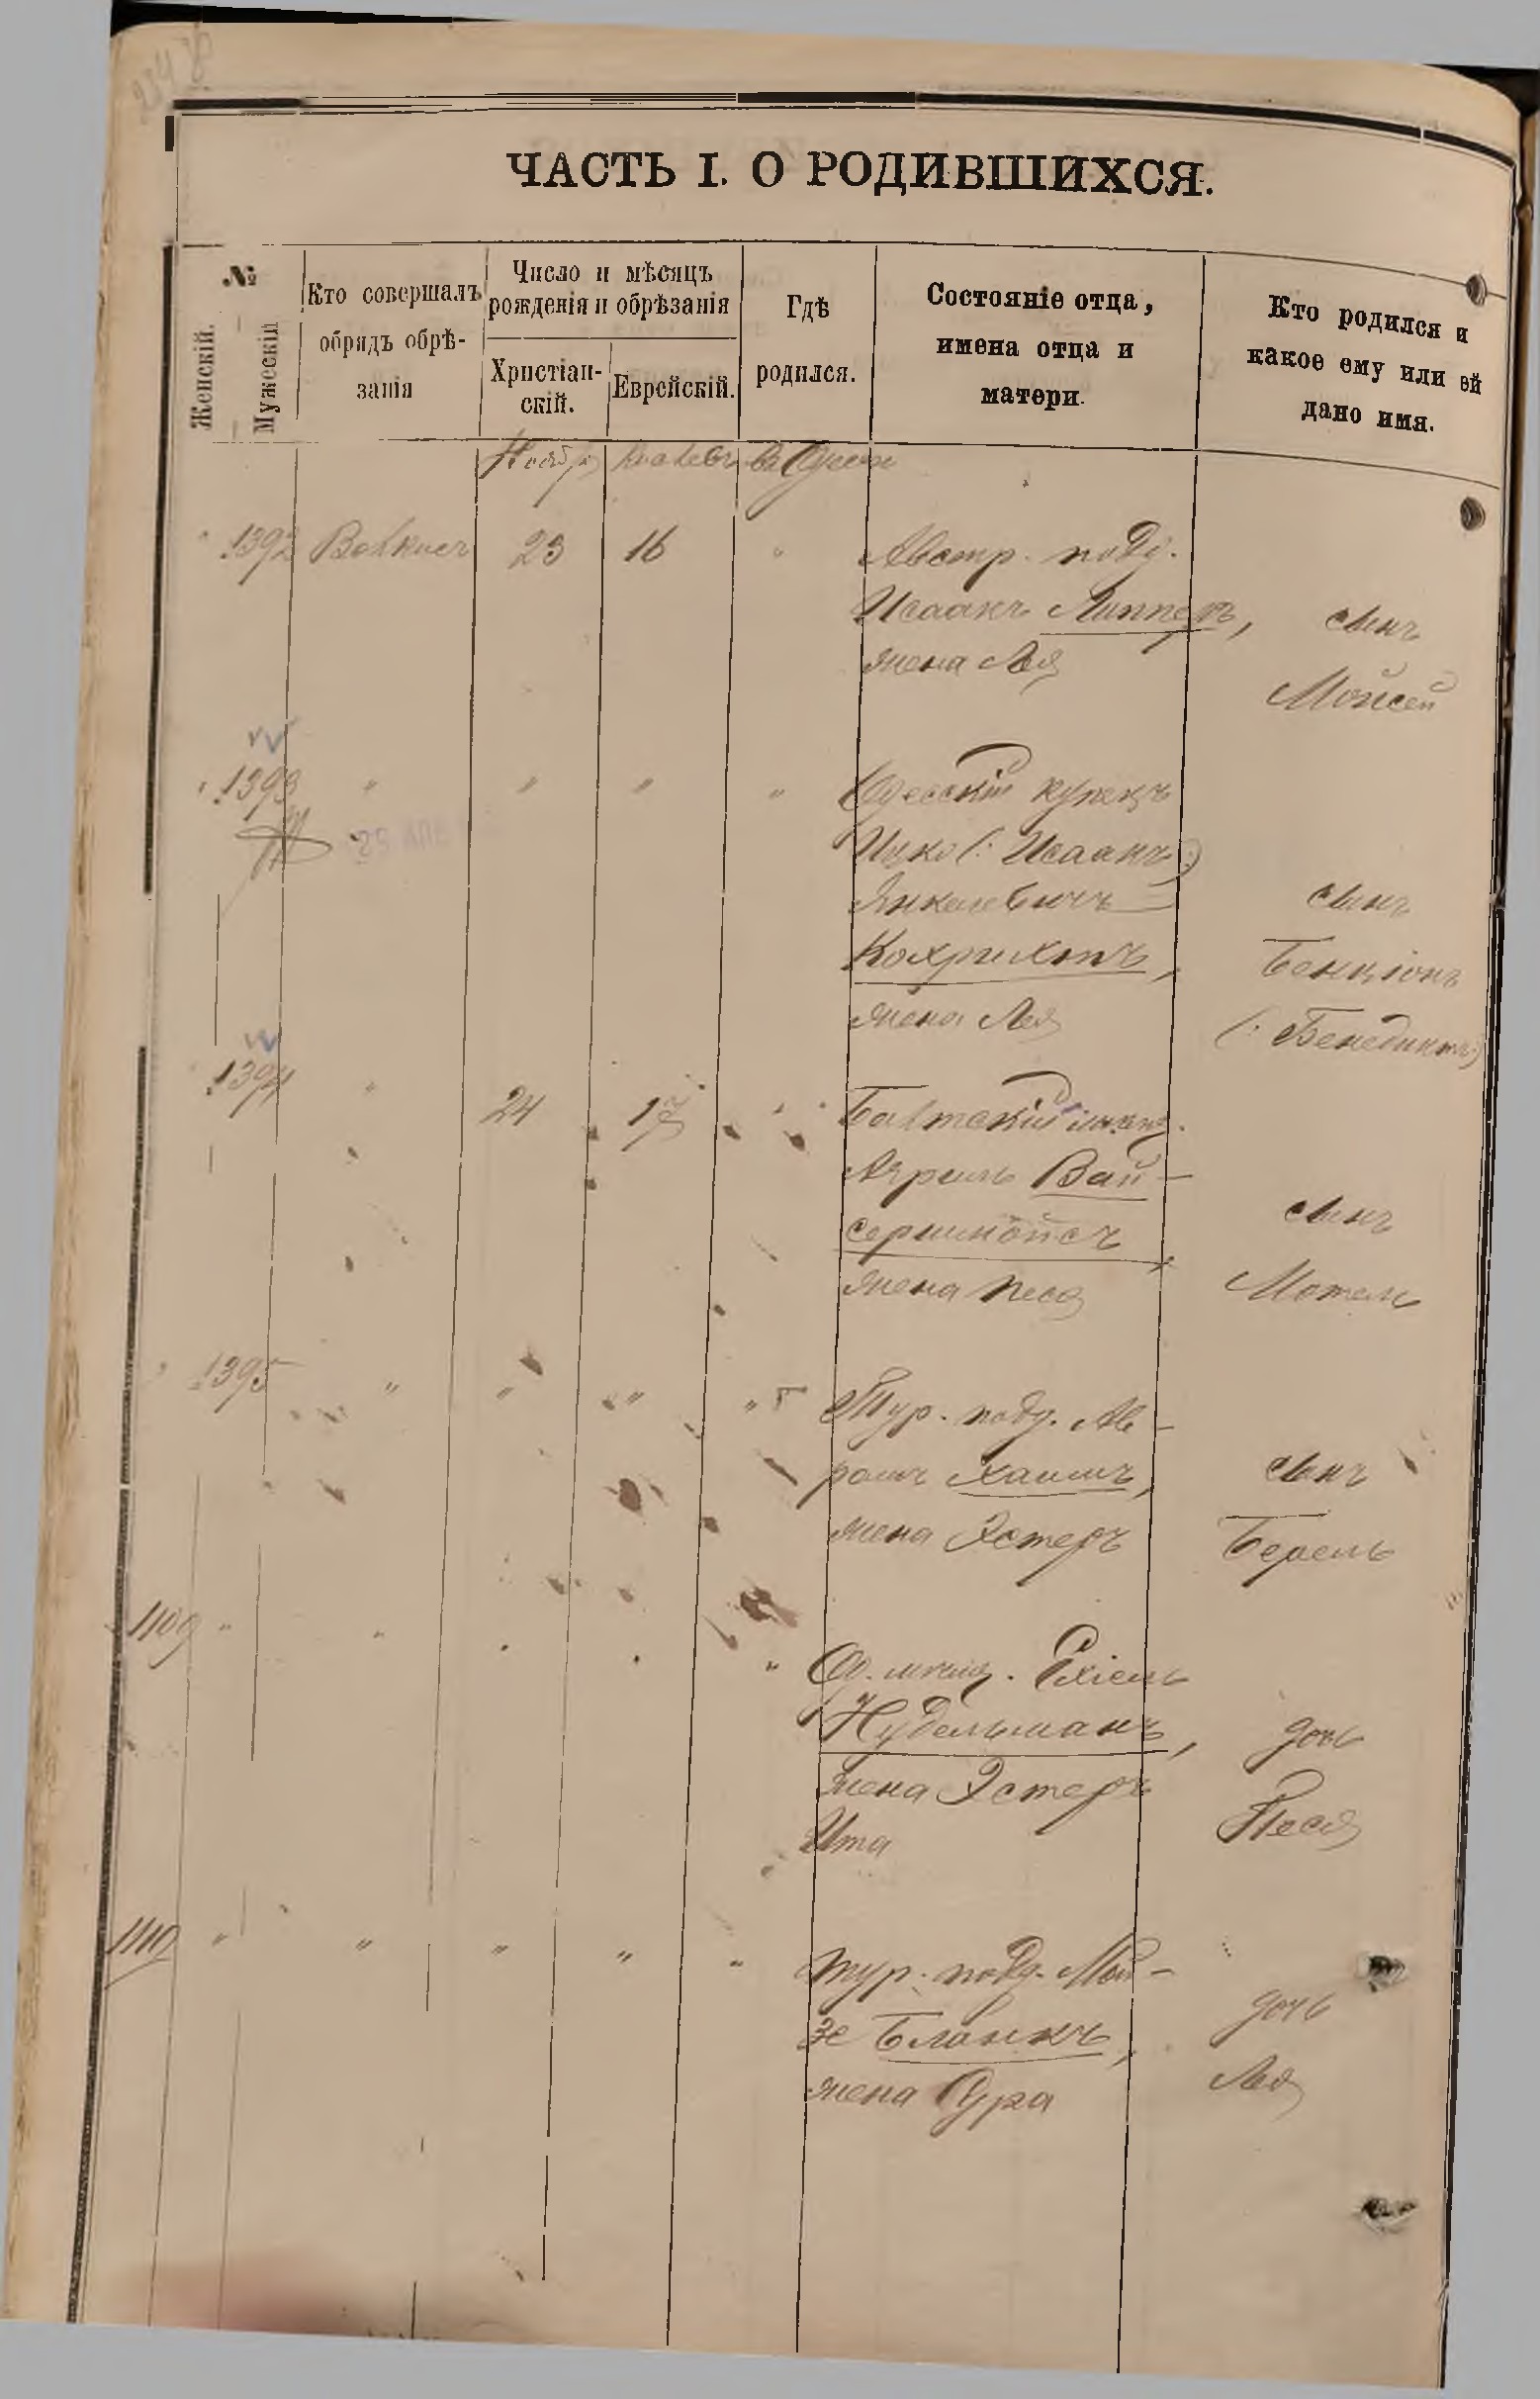 ЧАСТЬ I. О РОДИВШИХСЯ.
№
Женскій.
Мужескій
Кто совершалъ
обрядъ обрѣ-
занія
Число и мѣсяцъ
рожденія и обрѣзанія
Христіан-
скій.
Еврейскій.
Гдѣ
родился.
Состояніе отца,
имена отца и
матери.
Кто родился и
какое ему или ей
дано имя.
Ноябр въ Одессѣ
" 1392 23 16 " Австр. подд.
Исаакъ Липперъ, сынъ
жена Лея
Мойсей
" 1393 " " " " Одесскій купецъ
Ицко (: Исаакъ :)
25 АПР
Янкелевичъ сынъ
Кохрихтъ, Бенціонъ
жена Лея (: Бенедиктъ :)
1394 " 24 17 " Балтскій мѣщ.
Вай-
сершнойсъ, сынъ
жена Песя Мотель
" 1395 " " " " Тур. подд. Ав-
рамъ Хаимъ, сынъ
жена Эстеръ Берель
1109 " " " " " Од. мѣщ. Ехіель
Нудельманъ, дочь
жена Эстеръ
Ита Песя
1110 " " " " " тур. подд. Мой-
зе Бланкъ, дочь
жена Сура Лея